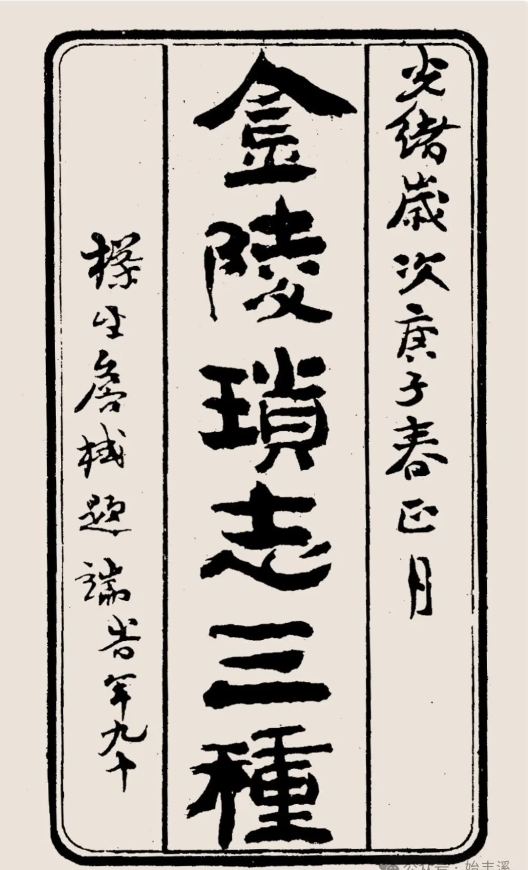 光緒歲次庚子春正月
金陵瑣志三種
樸生詹棫題端旹年九十
公众号 · 始丰溪